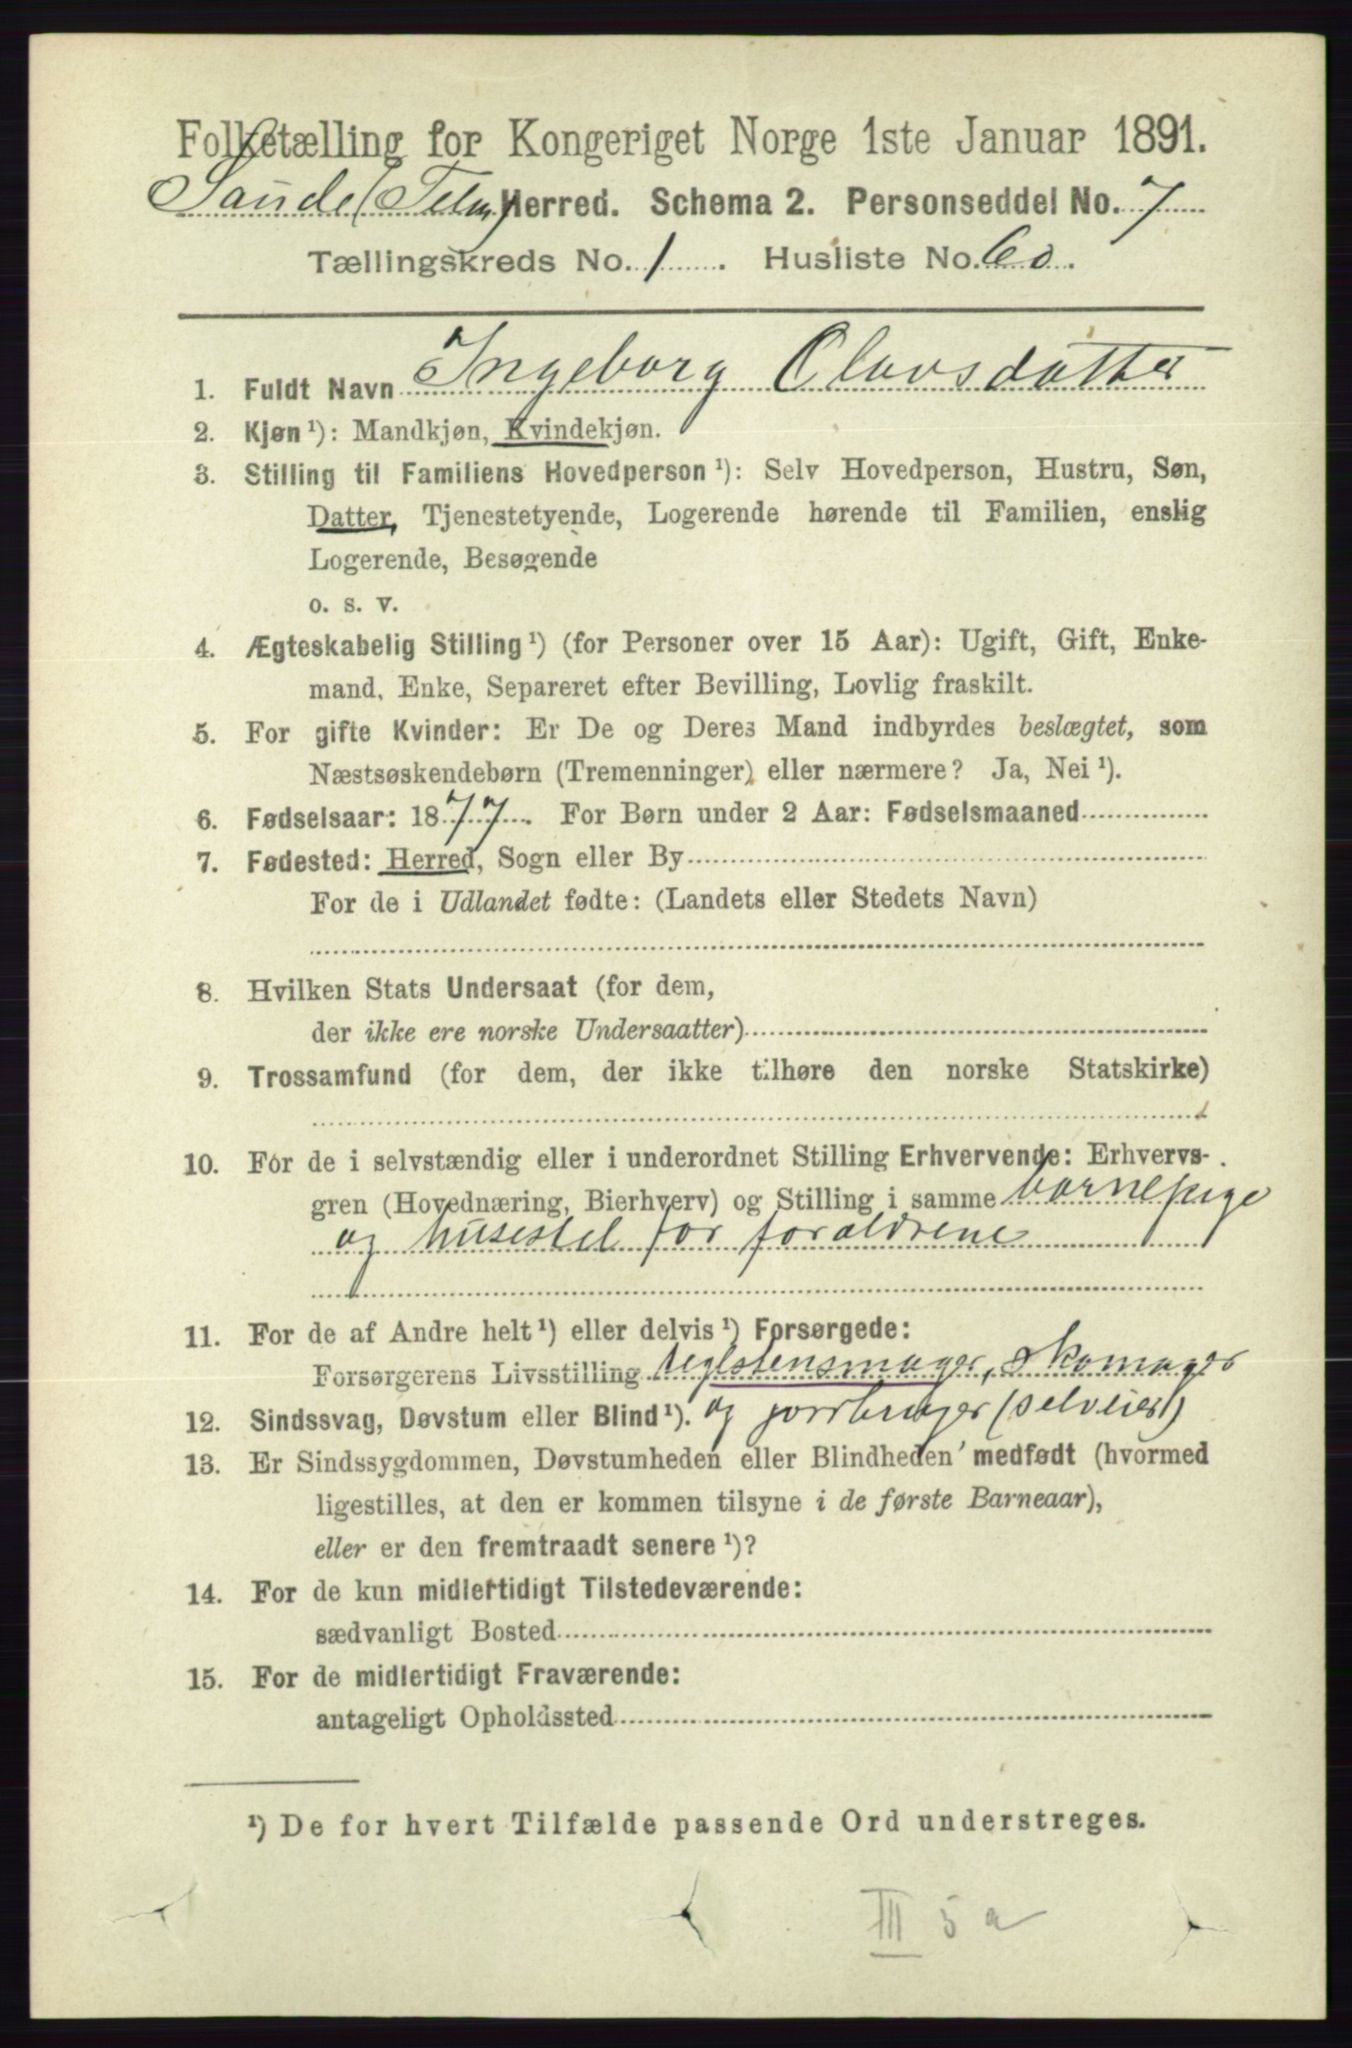 Folketælling for Kongeriget Norge 1ste Januar 1891.
Saude (Telm) Herred. Schema 2. Personseddel No. 7
Tællingskreds No. 1. Husliste No. 60.
1. Fuldt Navn Ingeborg Olavsdatter
2. Kjøn ¹): Mandkjøn, Kvindekjøn.
3. Stilling til Familiens Hovedperson ¹): Selv Hovedperson, Hustru, Søn,
Datter, Tjenestetyende, Logerende hørende til Familien, enslig
Logerende, Besøgende
o. s. v.
4. Ægteskabelig Stilling ¹) (for Personer over 15 Aar): Ugift, Gift, Enke-
mand, Enke, Separeret efter Bevilling, Lovlig fraskilt.
5. For gifte Kvinder: Er De og Deres Mand indbyrdes beslægtet, som
Næstsøskendebørn (Tremenninger) eller nærmere? Ja, Nei ¹).
6. Fødselsaar: 1877. For Børn under 2 Aar: Fødselsmaaned
7. Fødested: Herred, Sogn eller By
For de i Udlandet fødte: (Landets eller Stedets Navn)
8. Hvilken Stats Undersaat (for dem,
der ikke ere norske Undersaatter)
9. Trossamfund (for dem, der ikke tilhøre den norske Statskirke)
10. For de i selvstændig eller i underordnet Stilling Erhvervende: Erhvervs-
gren (Hovednæring, Bierhverv) og Stilling i samme barnepige
og husestel for foraldrene
11. For de af Andre helt ¹) eller delvis ¹) Forsørgede:
Forsørgerens Livsstilling teglstensmager, skomager
12. Sindssvag, Døvstum eller Blind ¹). og jorbruger (selveier)
13. Er Sindssygdommen, Døvstumheden eller Blindheden medfødt (hvormed
ligestilles, at den er kommen tilsyne i de første Barneaar),
eller er den fremtraadt senere ¹)?
14. For de kun midlertidigt Tilstedeværende:
sædvanligt Bosted
15. For de midlertidigt Fraværende:
antageligt Opholdssted
¹) De for hvert Tilfælde passende Ord understreges.
III 5 a